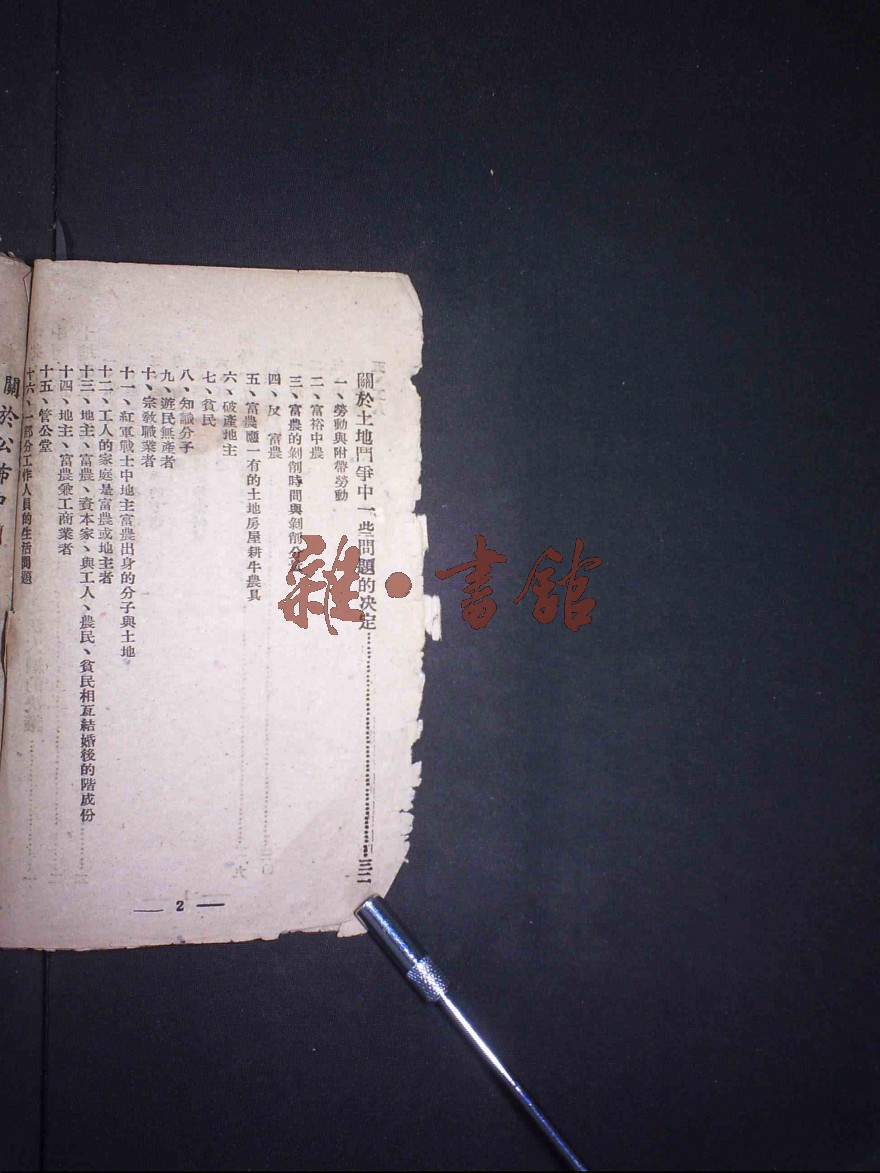 關於土地鬥爭中一些問題的決定……三二
一、勞動與附帶勞動
二、富裕中農
三、富農的剝削時間與剝削分
四、反 富農
五、富農應有的土地房屋耕牛農具
六、破產地主
七、貧民
八、知識分子
九、遊民無產者
十、宗教職業者
十一、紅軍戰士中地主富農出身的分子與土地
十二、工人的家庭是富農或地主者
十三、地主、富農、資本家、與工人、農民、貧民相互結婚後的階成份
十四、地主、富農兼工商業者
十五、管公堂
十六、一部分工作人員的生活問題
關於公布
— 2 —
雜·書館